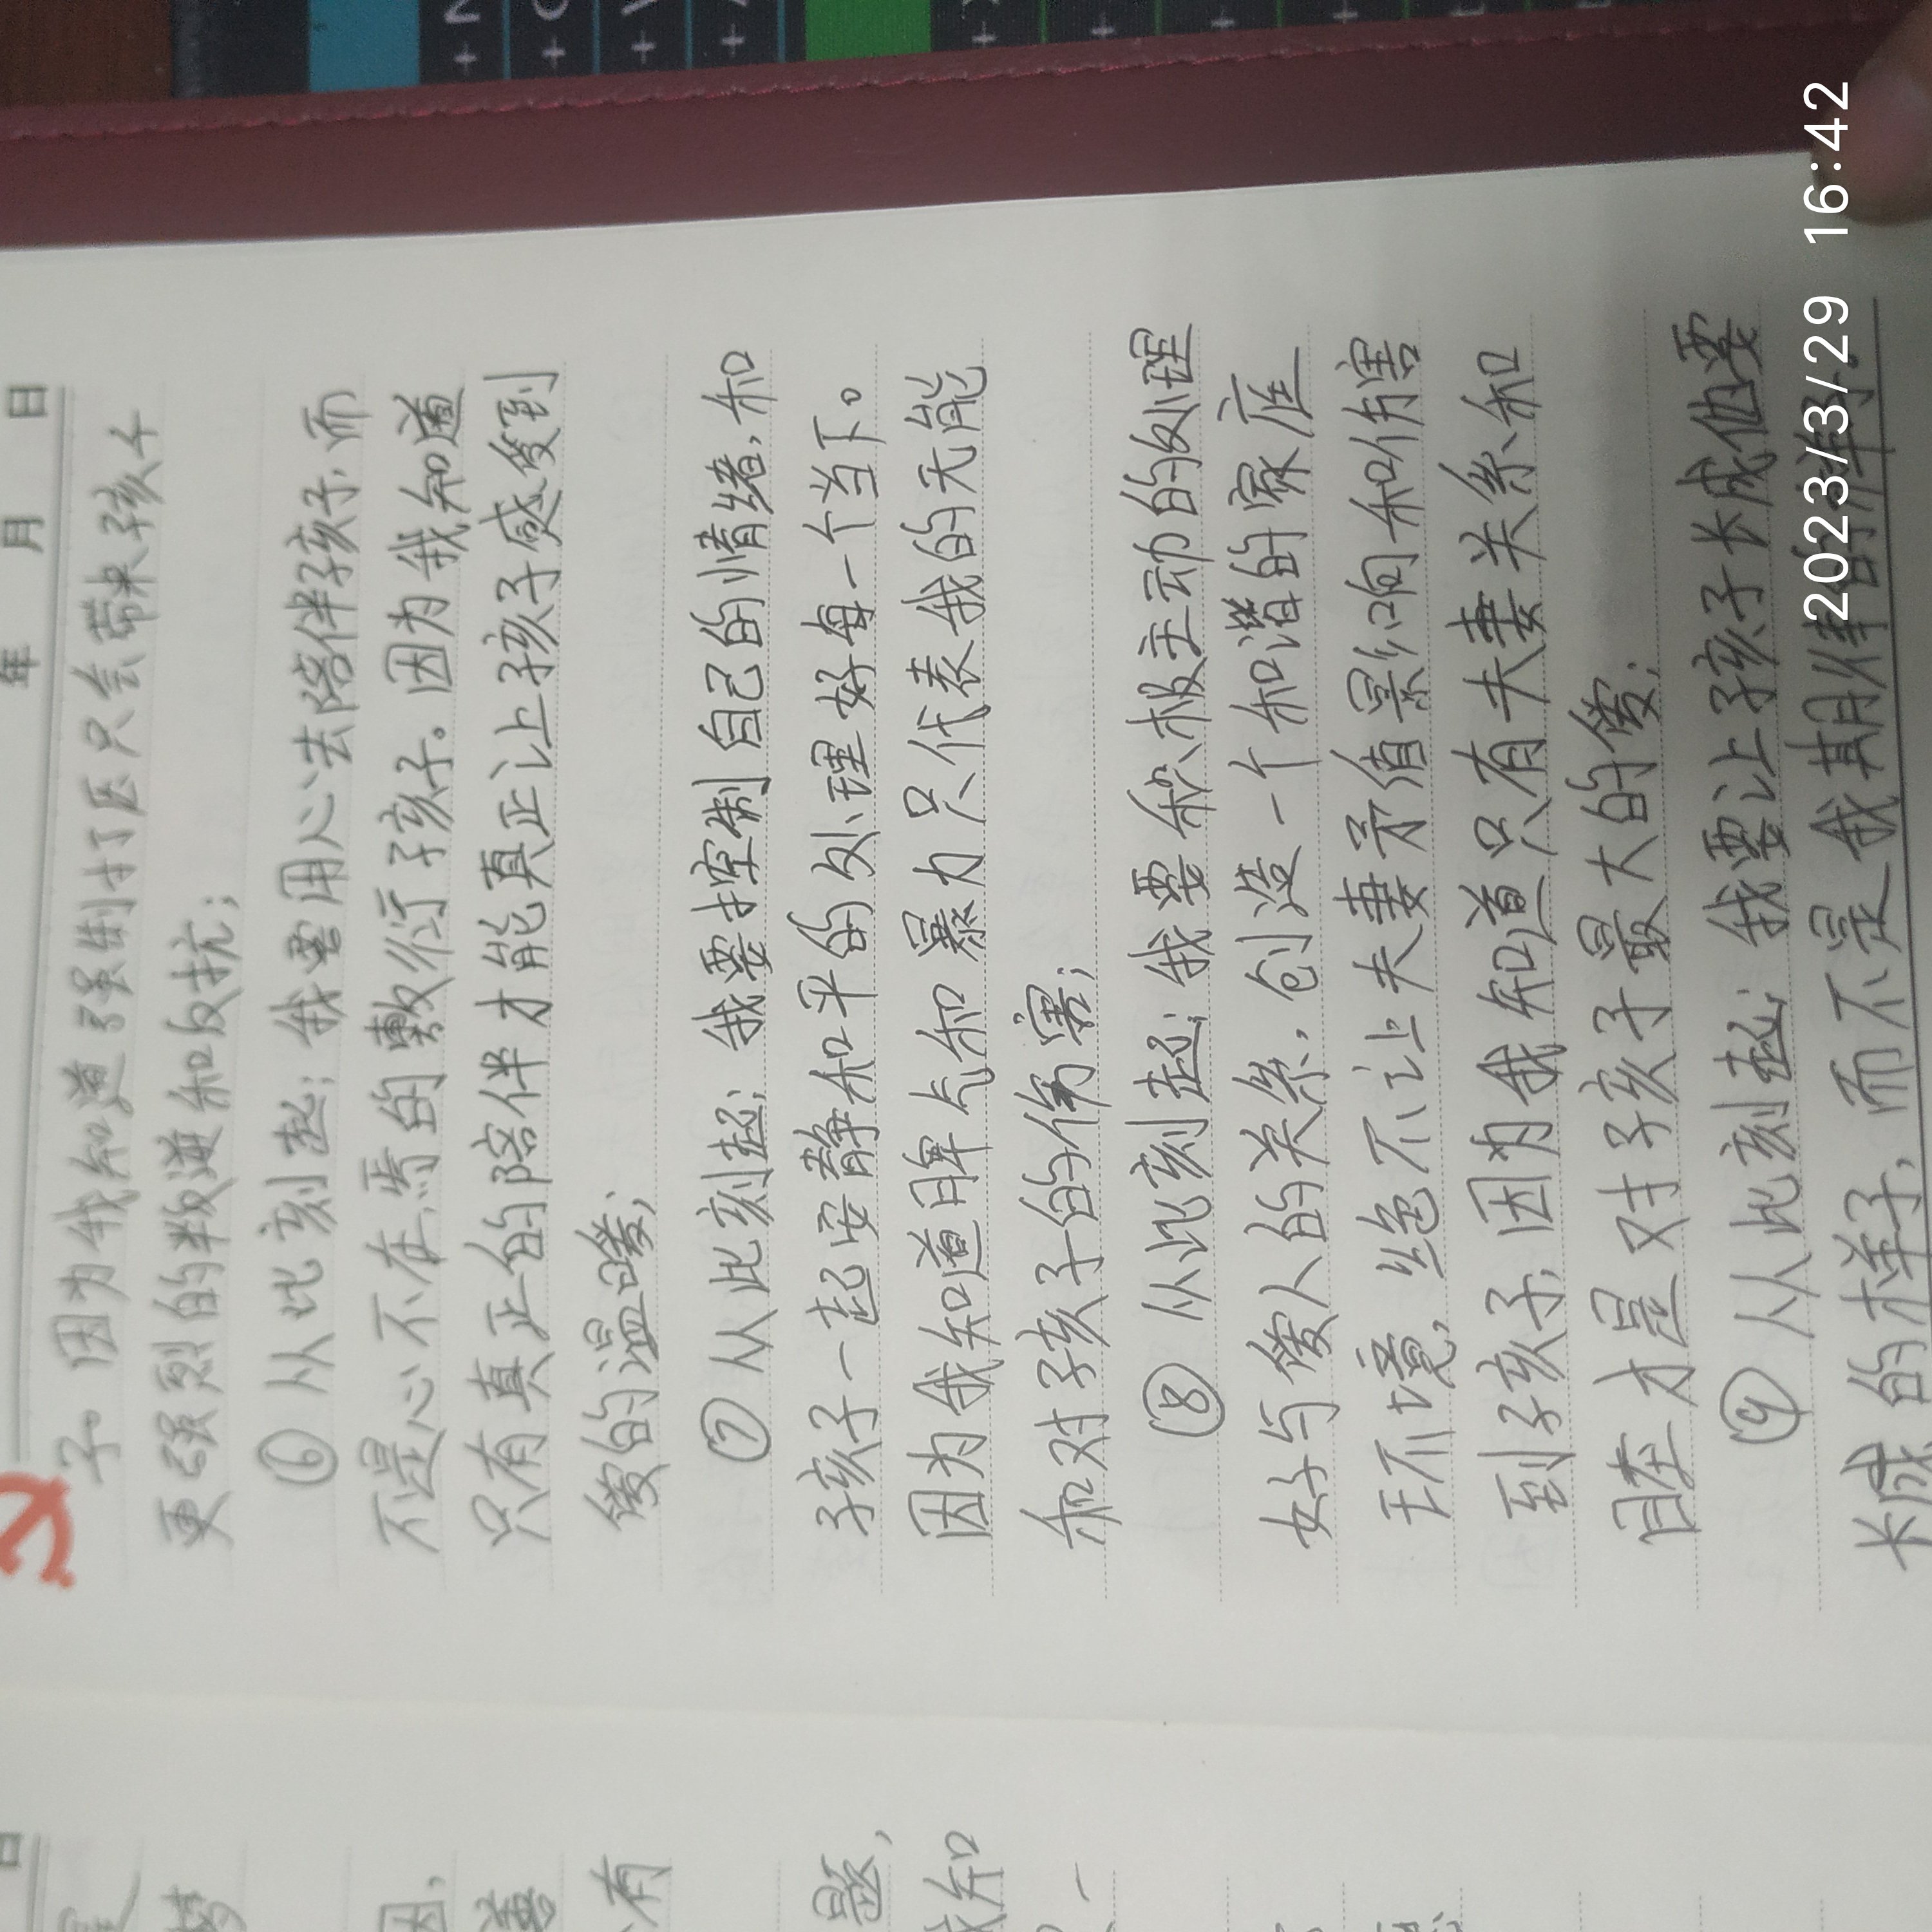 年 月 日
子。因为我知道强制打压只会带来孩子
更强烈的叛逆和反抗；
⑥从此刻起；我要用心去陪伴孩子，而
不是心不在焉的敷衍孩子。因为我知道
只有真正的陪伴才能真正让孩子感爱到
爱的温暖；
⑦从此刻起；我要控制自己的情绪，和
孩子一起安静和平的处理好每一个当下。
因为我知道脾气和暴力只代表我的无能
和对孩子的伤害；
⑧从此刻起；我要积极主动的处理
好与爱人的关系，创造一个和谐的家庭
环境，绝不让夫妻矛值影响和伤害
到孩子，因为我知道只有夫妻关系和
睦才是对孩子最大的爱；
⑨从此刻起；我要让孩子长成他要
长成的样子，而不是我期待的样子。
2023/3/29 16:42
日
因，
有
题，
我知
+ N
+ V
+ A